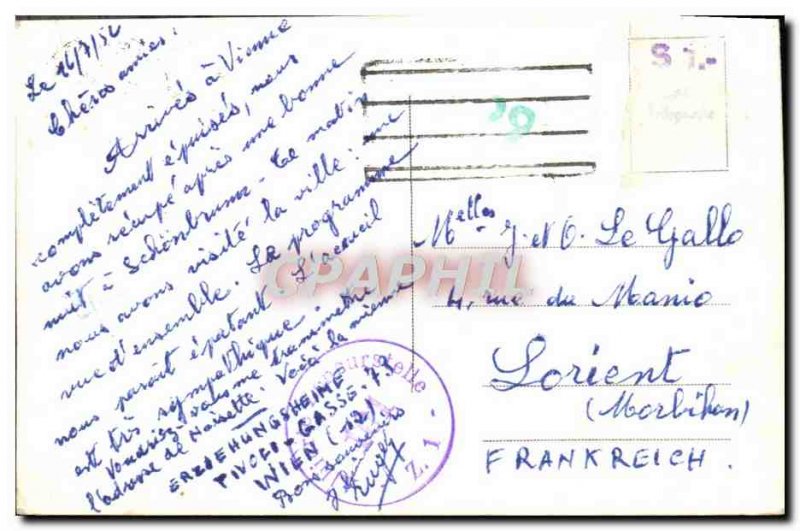 Le 16/7/52
Chères amies,
Arrivés à Vienne
complètement épuisés, nous
avons récupé après une bonne
nuit à Schönbrunn. Ce matin
nous avons visité la ville : une
vue d'ensemble. Le programme
nous paraît épatant. L'accueil
est très sympathique.
Voudriez-vous me transmettre
l'adresse de Noisette. Voçà la mienne
ERZIEHUNGSHEIME
TIVOLI-GASSE-73
WIEN (12)
Bons souvenirs
S 1.-
Melles J. et O. Le Gallo
4, rue du Manio
Lorient
(Morbihan)
FRANKREICH.
Z. 1 -
CPAPHIL